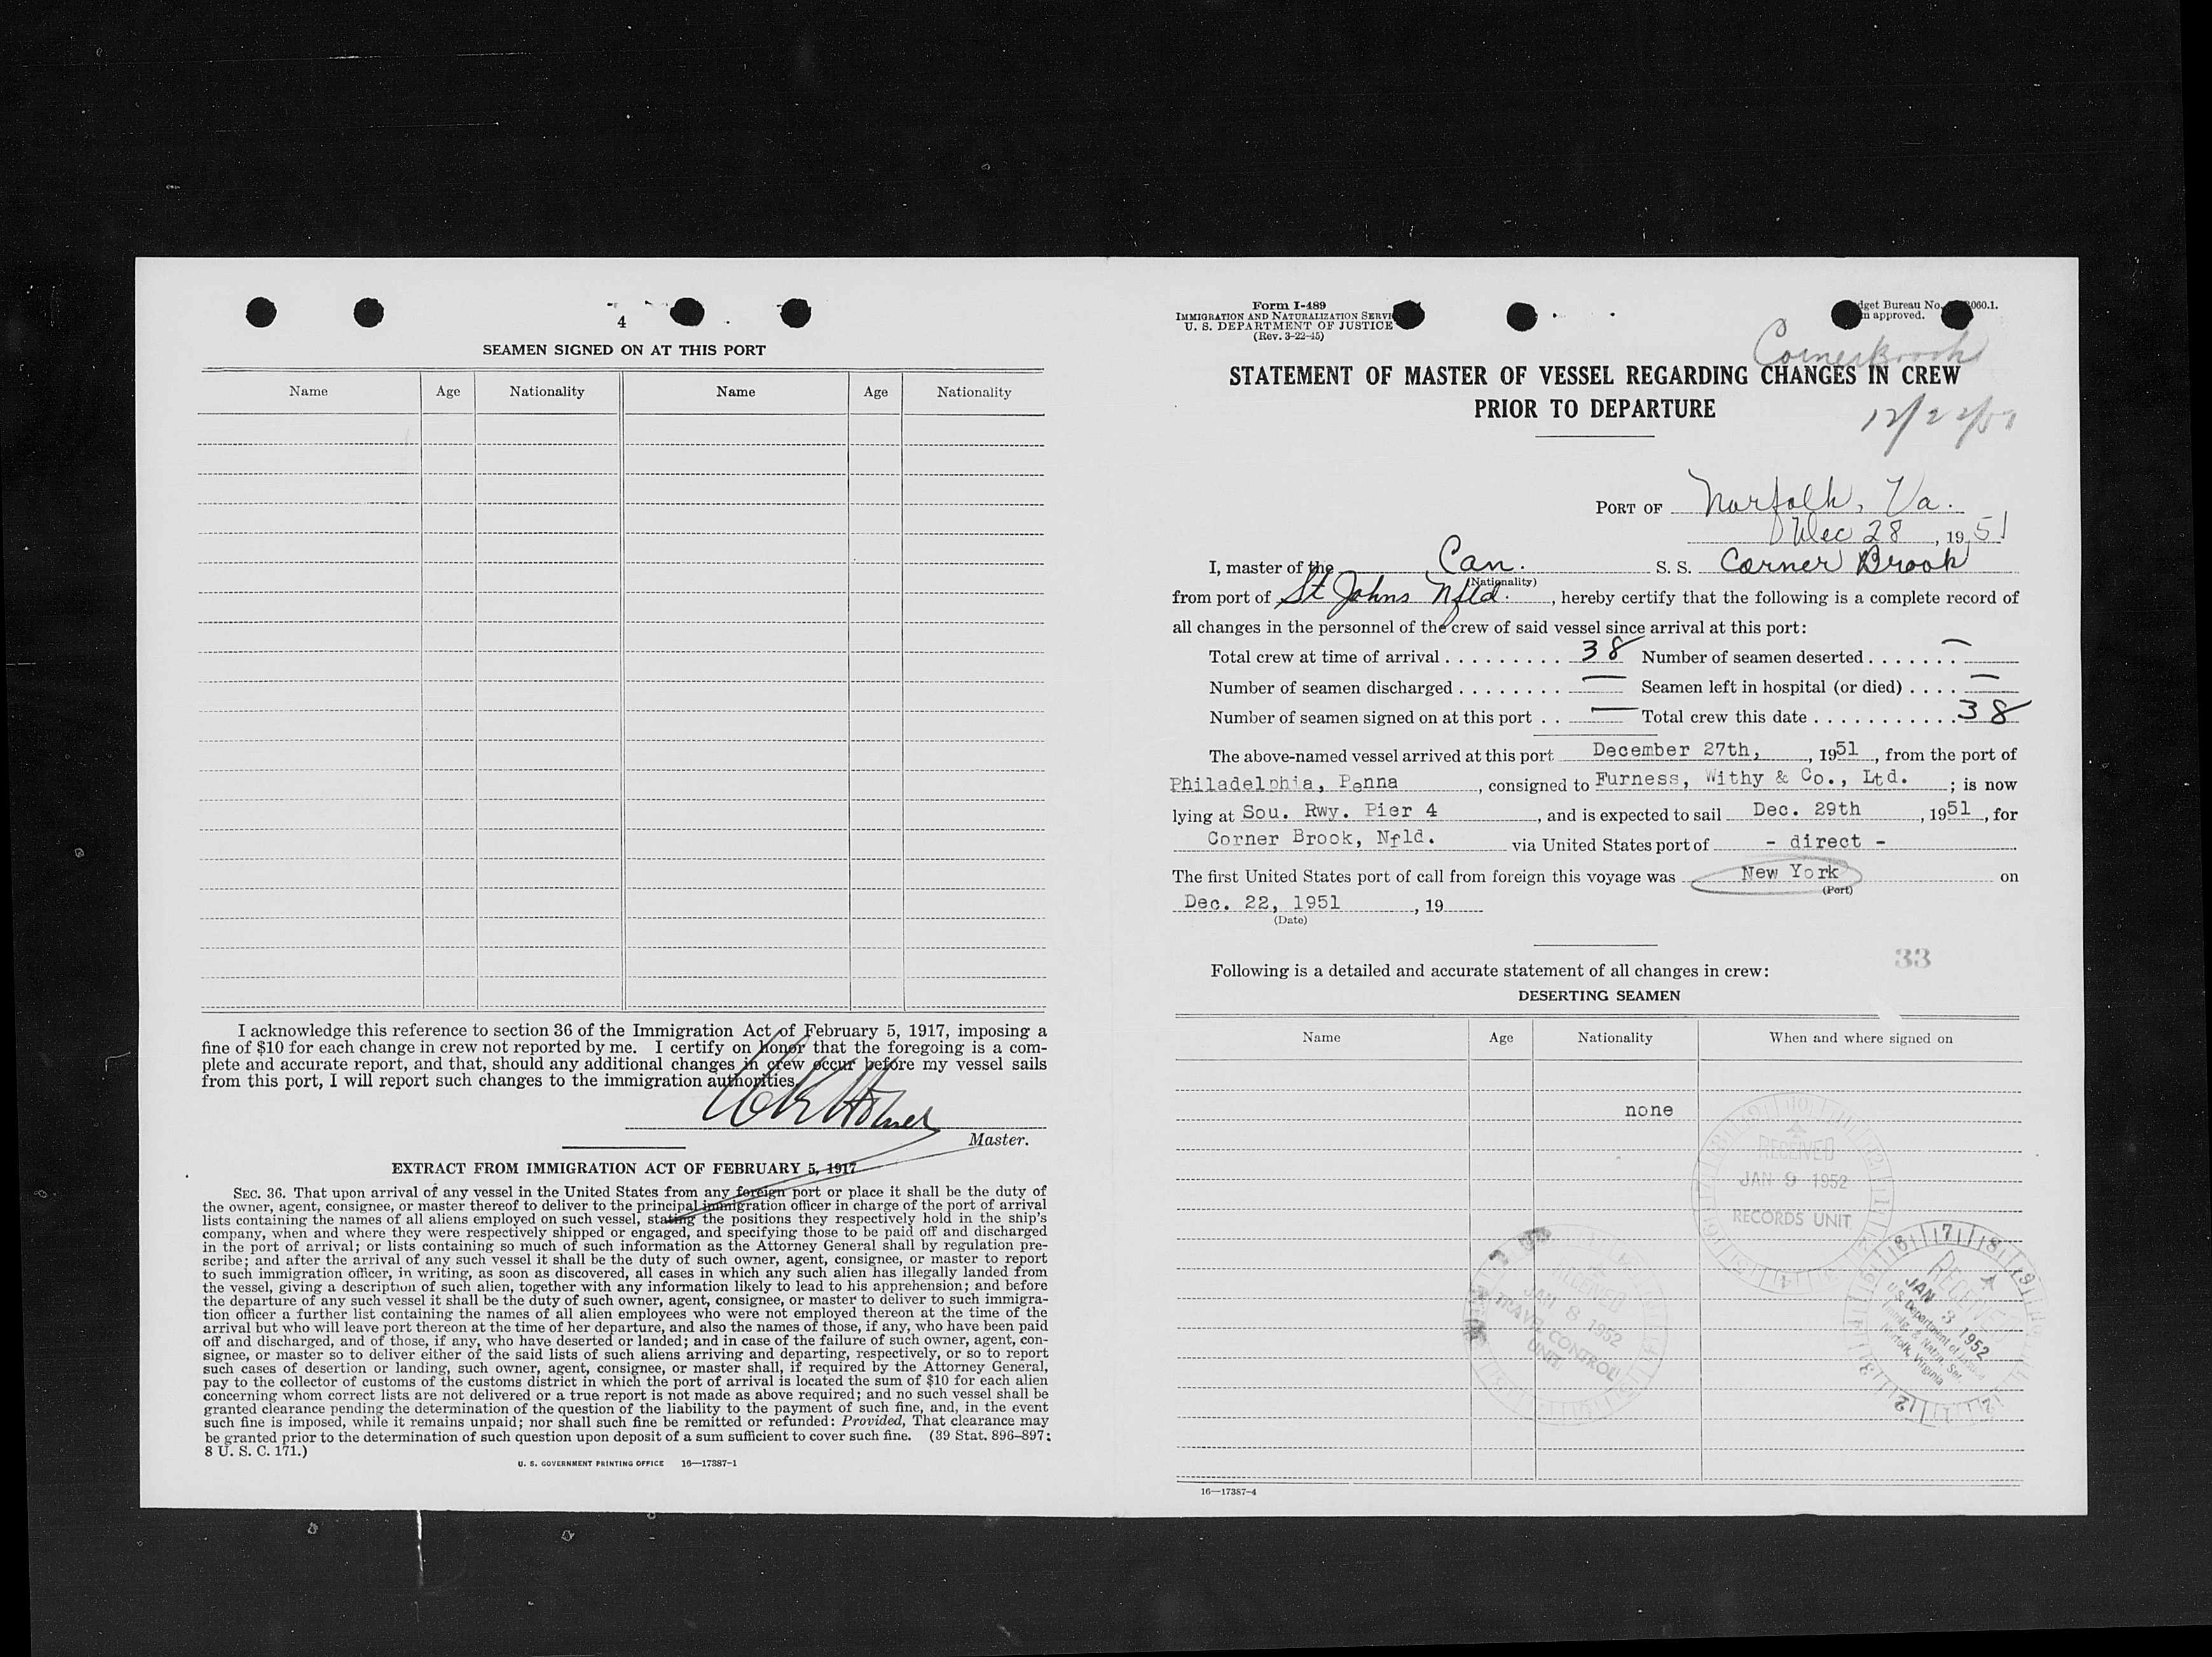 4
SEAMEN SIGNED ON AT THIS PORT
Name Age Nationality Name Age Nationality
I acknowledge this reference to section 36 of the Immigration Act of February 5, 1917, imposing a
fine of $10 for each change in crew not reported by me. I certify on honor that the foregoing is a com-
plete and accurate report, and that, should any additional changes in crew occur before my vessel sails
from this port, I will report such changes to the immigration authorities.
Master.
EXTRACT FROM IMMIGRATION ACT OF FEBRUARY 5, 1917
SEC. 36. That upon arrival of any vessel in the United States from any foreign port or place it shall be the duty of
the owner, agent, consignee, or master thereof to deliver to the principal immigration officer in charge of the port of arrival
lists containing the names of all aliens employed on such vessel, stating the positions they respectively hold in the ship's
company, when and where they were respectively shipped or engaged, and specifying those to be paid off and discharged
in the port of arrival; or lists containing so much of such information as the Attorney General shall by regulation pre-
scribe; and after the arrival of any such vessel it shall be the duty of such owner, agent, consignee, or master to report
to such immigration officer, in writing, as soon as discovered, all cases in which any such alien has illegally landed from
the vessel, giving a description of such alien, together with any information likely to lead to his apprehension; and before
the departure of any such vessel it shall be the duty of such owner, agent, consignee, or master to deliver to such immigra-
tion officer a further list containing the names of all alien employees who were not employed thereon at the time of the
arrival but who will leave port thereon at the time of her departure, and also the names of those, if any, who have been paid
off and discharged, and of those, if any, who have deserted or landed; and in case of the failure of such owner, agent, con-
signee, or master so to deliver either of the said lists of such aliens arriving and departing, respectively, or so to report
such cases of desertion or landing, such owner, agent, consignee, or master shall, if required by the Attorney General,
pay to the collector of customs of the customs district in which the port of arrival is located the sum of $10 for each alien
concerning whom correct lists are not delivered or a true report is not made as above required; and no such vessel shall be
granted clearance pending the determination of the question of the liability to the payment of such fine, and, in the event
such fine is imposed, while it remains unpaid; nor shall such fine be remitted or refunded: Provided, That clearance may
be granted prior to the determination of such question upon deposit of a sum sufficient to cover such fine. (39 Stat. 896–897;
8 U. S. C. 171.)
U. S. GOVERNMENT PRINTING OFFICE 16—17387-1
Form I-489
IMMIGRATION AND NATURALIZATION SERVI
U. S. DEPARTMENT OF JUSTICE
(Rev. 3-22-45)
dget Bureau No. 060.1.
m approved.
Cornerbrook
STATEMENT OF MASTER OF VESSEL REGARDING CHANGES IN CREW
PRIOR TO DEPARTURE
PORT OF Norfolk, Va.
Dec 28, 1951
I, master of the Can. S. S. Corner Brook
(Nationality)
from port of St Johns Nfld., hereby certify that the following is a complete record of
all changes in the personnel of the crew of said vessel since arrival at this port:
Total crew at time of arrival . . . . . . . . . 38 Number of seamen deserted . . . . . . . —
Number of seamen discharged . . . . . . . . — Seamen left in hospital (or died) . . . . —
Number of seamen signed on at this port . . — Total crew this date . . . . . . . . . . . 38
The above-named vessel arrived at this port December 27th, , 1951, from the port of
Philadelphia, Penna , consigned to Furness, Withy & Co., Ltd. ; is now
lying at Sou. Rwy. Pier 4 , and is expected to sail Dec. 29th , 1951, for
Corner Brook, Nfld. via United States port of - direct -
The first United States port of call from foreign this voyage was New York on
(Port)
Dec. 22, 1951 , 19
(Date)
33
Following is a detailed and accurate statement of all changes in crew:
DESERTING SEAMEN
Name Age Nationality When and where signed on
none
RECEIVED
JAN 9 1952
RECORDS UNIT
RECEIVED
JAN 8 1952
TRAVEL CONTROL
UNIT
RECEIVED
JAN 3 1952
U.S. Department of Justice
Immig. & Natzn. Ser.
Norfolk, Virginia
16—17387-4